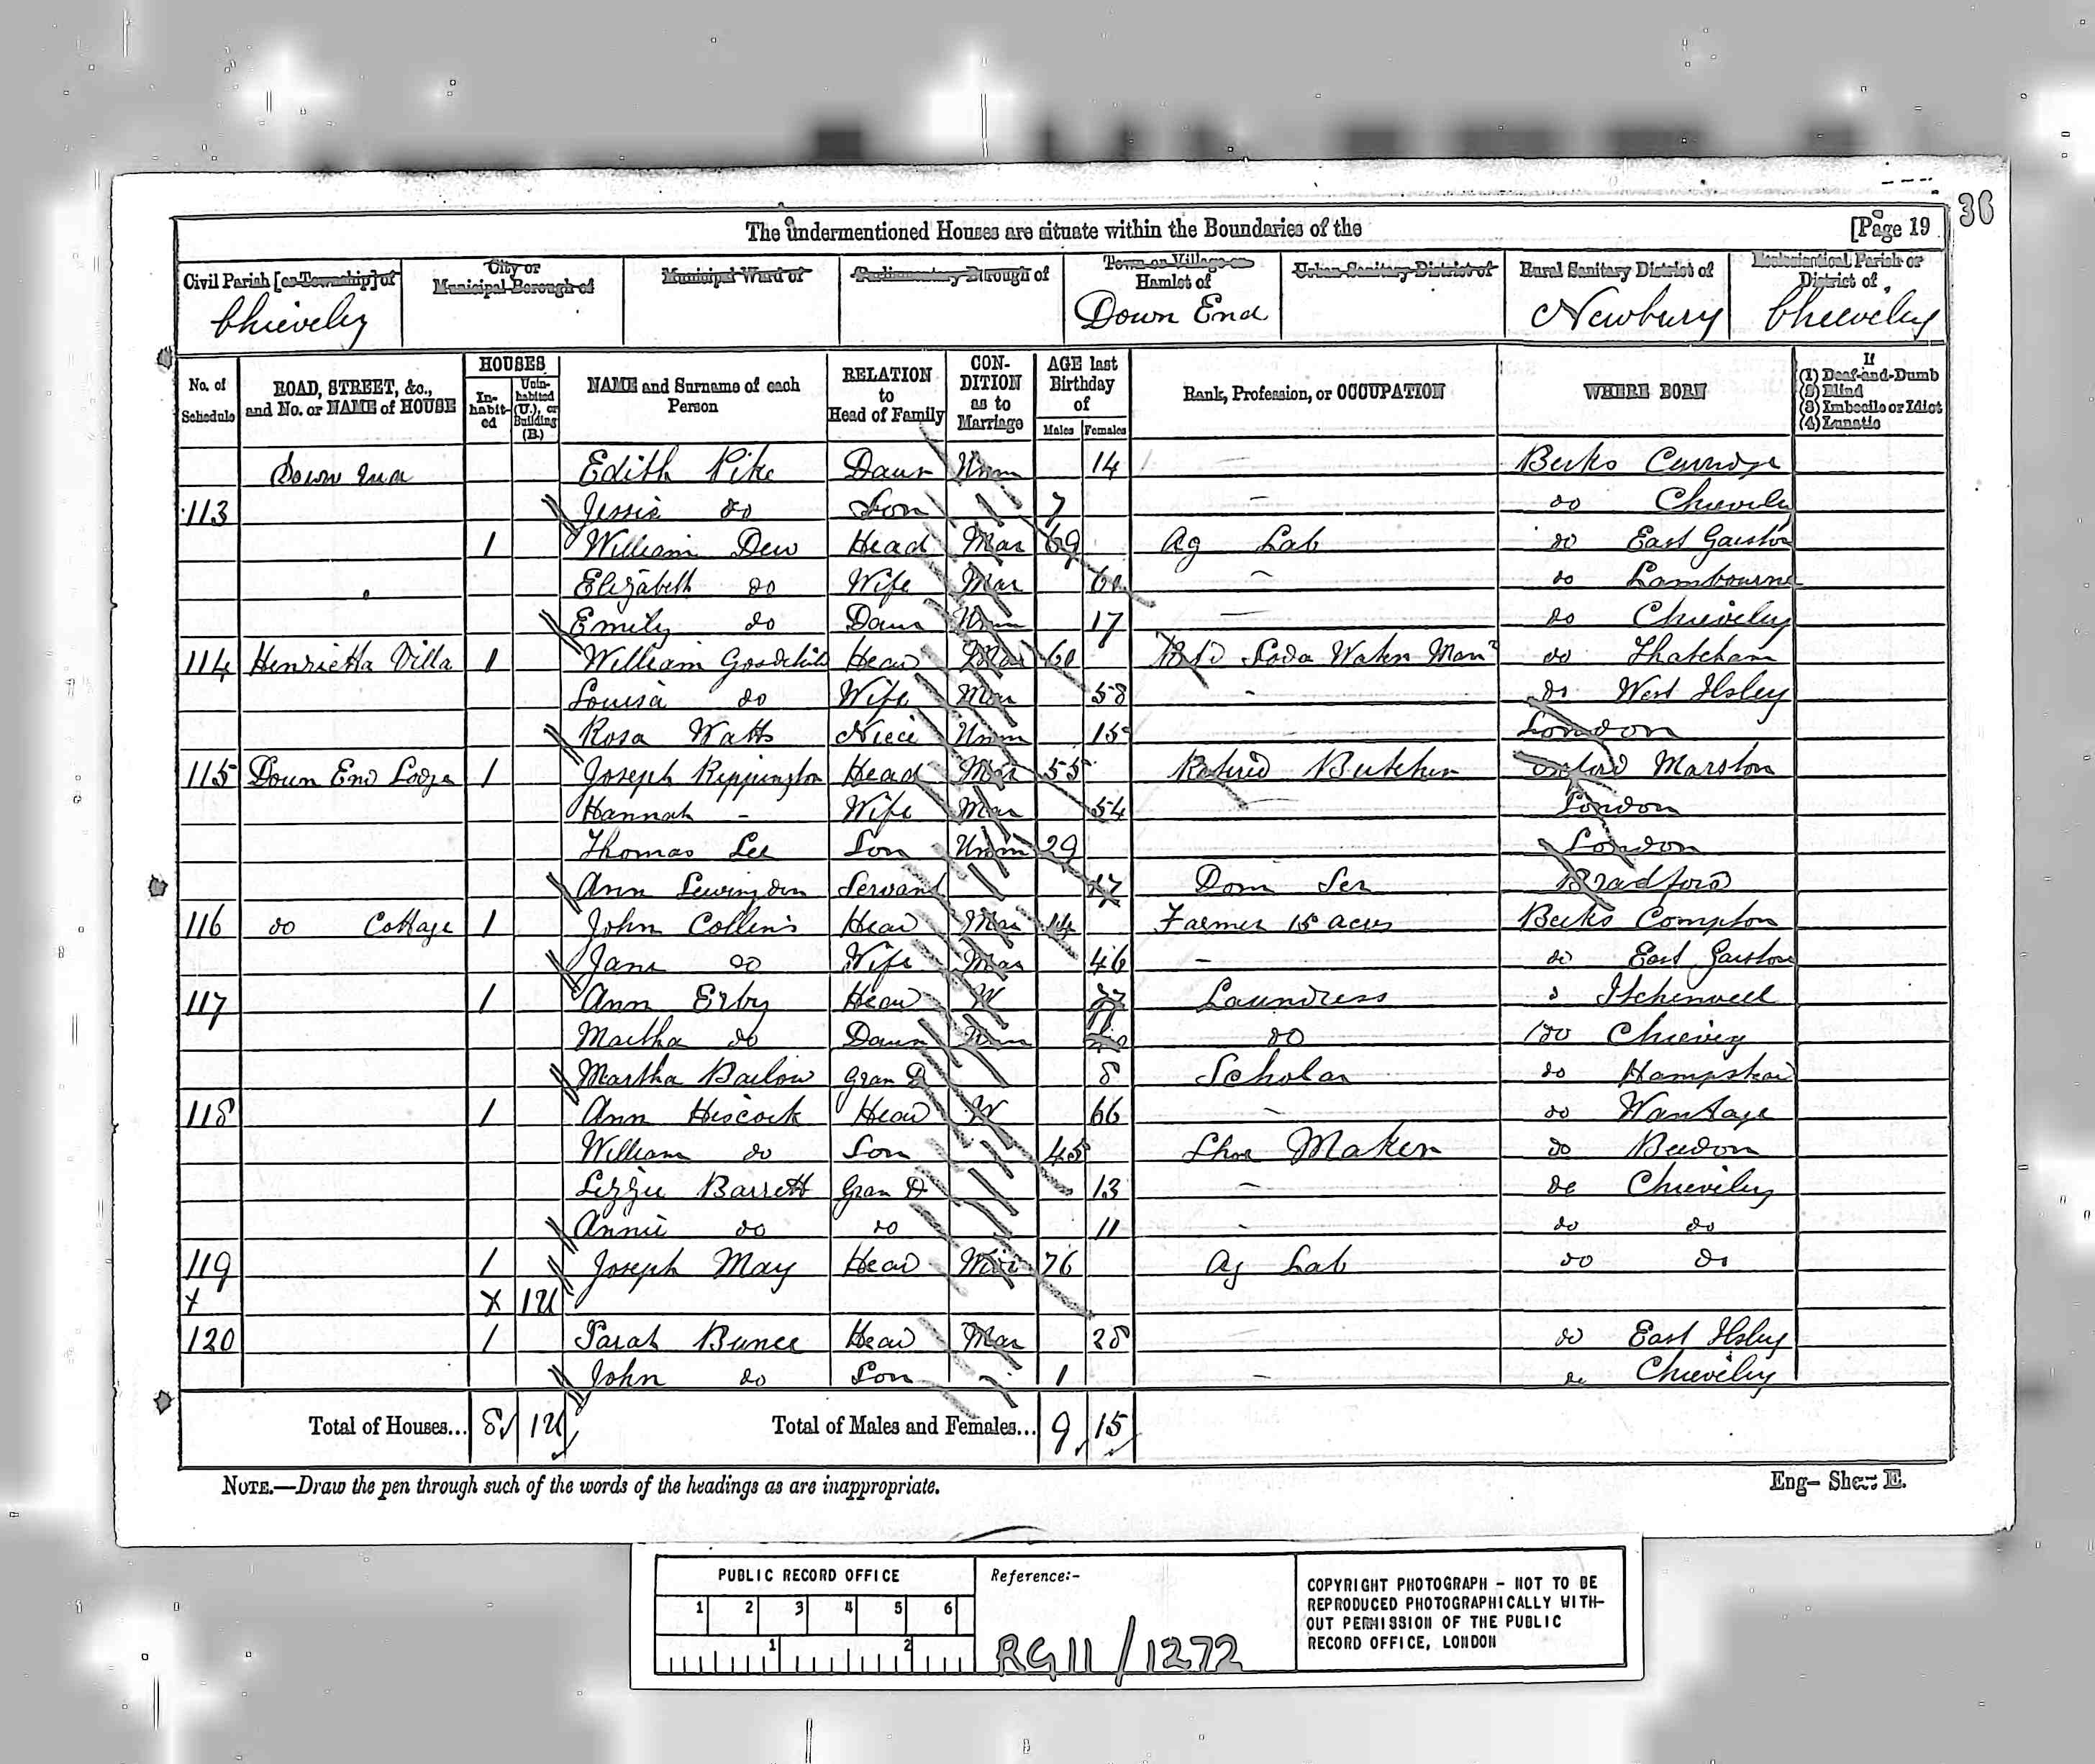 36
The undermentioned Houses are situate within the Boundaries of the [Page 19
Civil Parish [or Township] of City or Municipal Borough of Municipal Ward of Parliamentary Borough of Town or Village or Hamlet of Urban Sanitary District of Rural Sanitary District of Ecclesiastical Parish or District of
Chieveley Down End Newbury Chieveley
No. of Schedule ROAD, STREET, &c., and No. or NAME of HOUSE HOUSES In-habit-ed Unin-habited (U.), or Building (B.) NAME and Surname of each Person RELATION to Head of Family CON-DITION as to Marriage AGE last Birthday of Males Females Rank, Profession, or OCCUPATION WHERE BORN If (1) Deaf-and-Dumb (2) Blind (3) Imbecile or Idiot (4) Lunatic
Down End Edith Pike Daur Unm 14 Berks Curridge
113 Jessie do Son 7 do Chieveley
1 William Dew Head Mar 69 Ag Lab do East Garston
Elizabeth do Wife Mar do Lambourne
Emily do Daur Unm 17 do Chieveley
114 Henrietta Villa 1 William Goodchild Head Mar 60 Soda Water Man do Thatcham
Louisa do Wife Mar 58 do West Ilsley
Rosa Watts Niece Unm 15 London
115 Down End Lodge 1 Joseph Rippington Head Mar 55 Retired Butcher Oxford Marston
Hannah - Wife Mar 54 London
Thomas Lee Son Unm 29 London
Ann Servant 17 Dom Ser Bradford
116 do Cottage 1 John Collins Head Mar 44 Farmer 15 acres Berks Compton
Jane do Wife Mar 46 do East Garston
117 1 Ann Erby Head W Laundress Itchenwell
Martha do Daur Unm do do Chieveley
Martha Barlow Gran D 8 Scholar do Hampstead
118 1 Ann Hiscock Head W 66 do Wantage
William do Son 45 Shoe Maker do Beedon
Lizzie Barrett Gran D 13 do Chieveley
Annie do do 11 do do
119 1 Joseph May Head Wid 76 Ag Lab do do
x x 1U
120 1 Sarah Bunce Head Mar 28 do East Ilsley
John do Son 1 do Chieveley
Total of Houses... 8 1U Total of Males and Females... 9 15
NOTE.—Draw the pen through such of the words of the headings as are inappropriate. Eng— Sheet E.
PUBLIC RECORD OFFICE Reference:-
1 2 3 4 5 6
1 2
RG11/1272
COPYRIGHT PHOTOGRAPH - NOT TO BE
REPRODUCED PHOTOGRAPHICALLY WITH-
OUT PERMISSION OF THE PUBLIC
RECORD OFFICE, LONDON